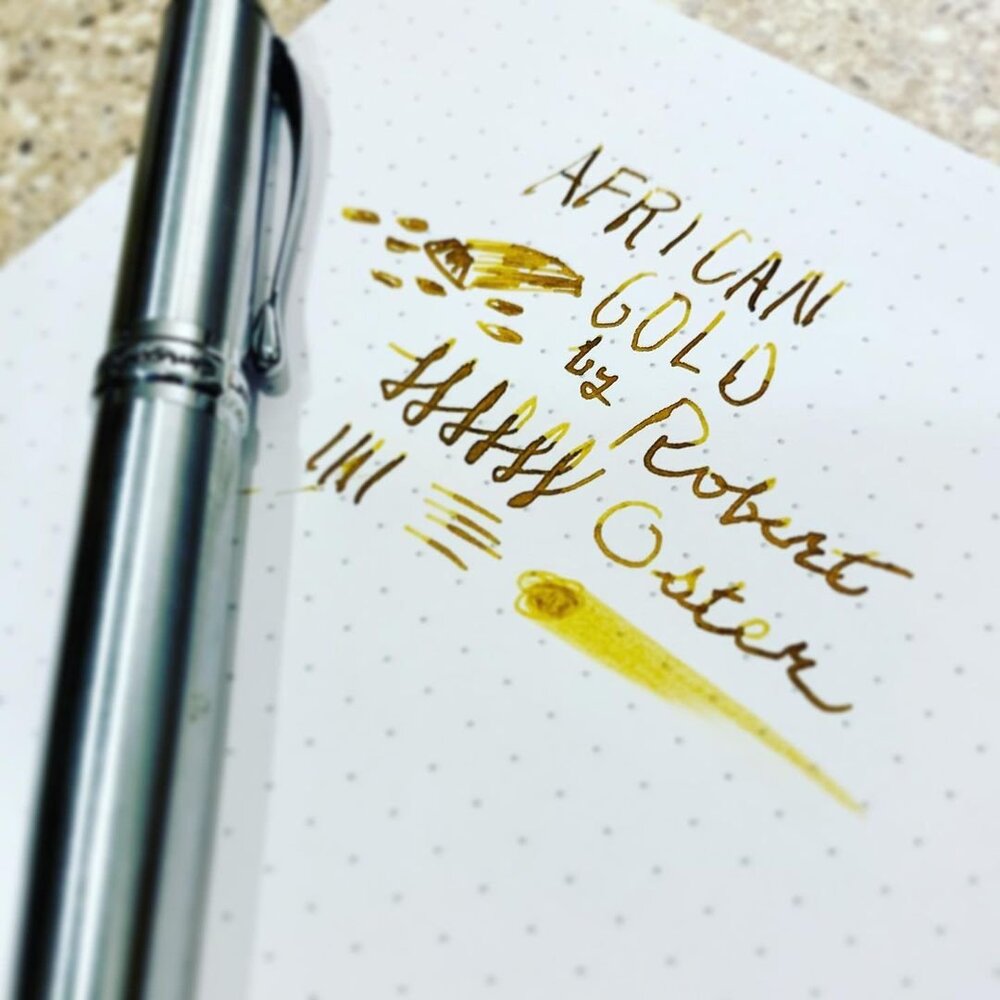 AFRICAN
GOLD
by
Robert
Oster